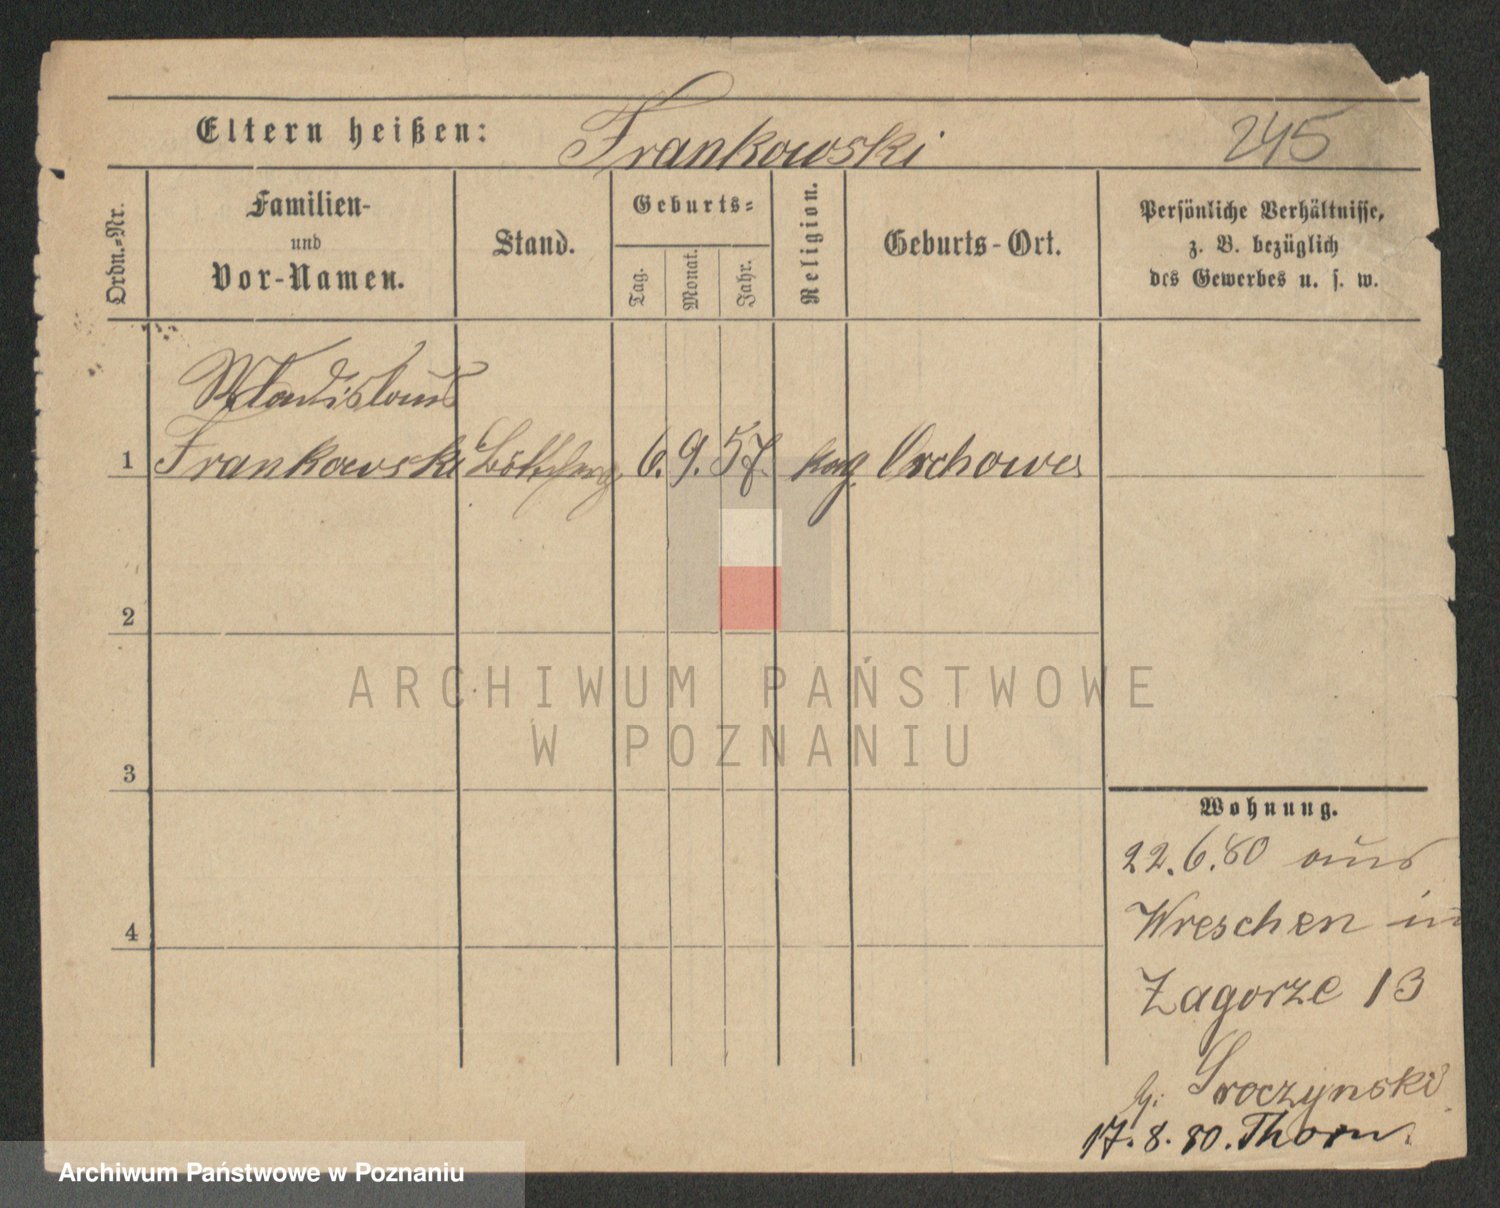 Eltern heißen: Frankowski 245
Ordn.-Nr.
Familien-
und
Vor-Namen.
Stand.
Geburts-
Tag.
Monat.
Jahr.
Religion.
Geburts-Ort.
Persönliche Verhältnisse,
z. B. bezüglich
des Gewerbes u. s. w.
Wladislaus
1 Frankowski 6. 9. 57. Orchowo
2
3
4
ARCHIWUM PAŃSTWOWE
W POZNANIU
Wohnung.
22.6.80 aus
Wreschen in
Zagorze 13
17.8.80. Thorn.
Archiwum Państwowe w Poznaniu